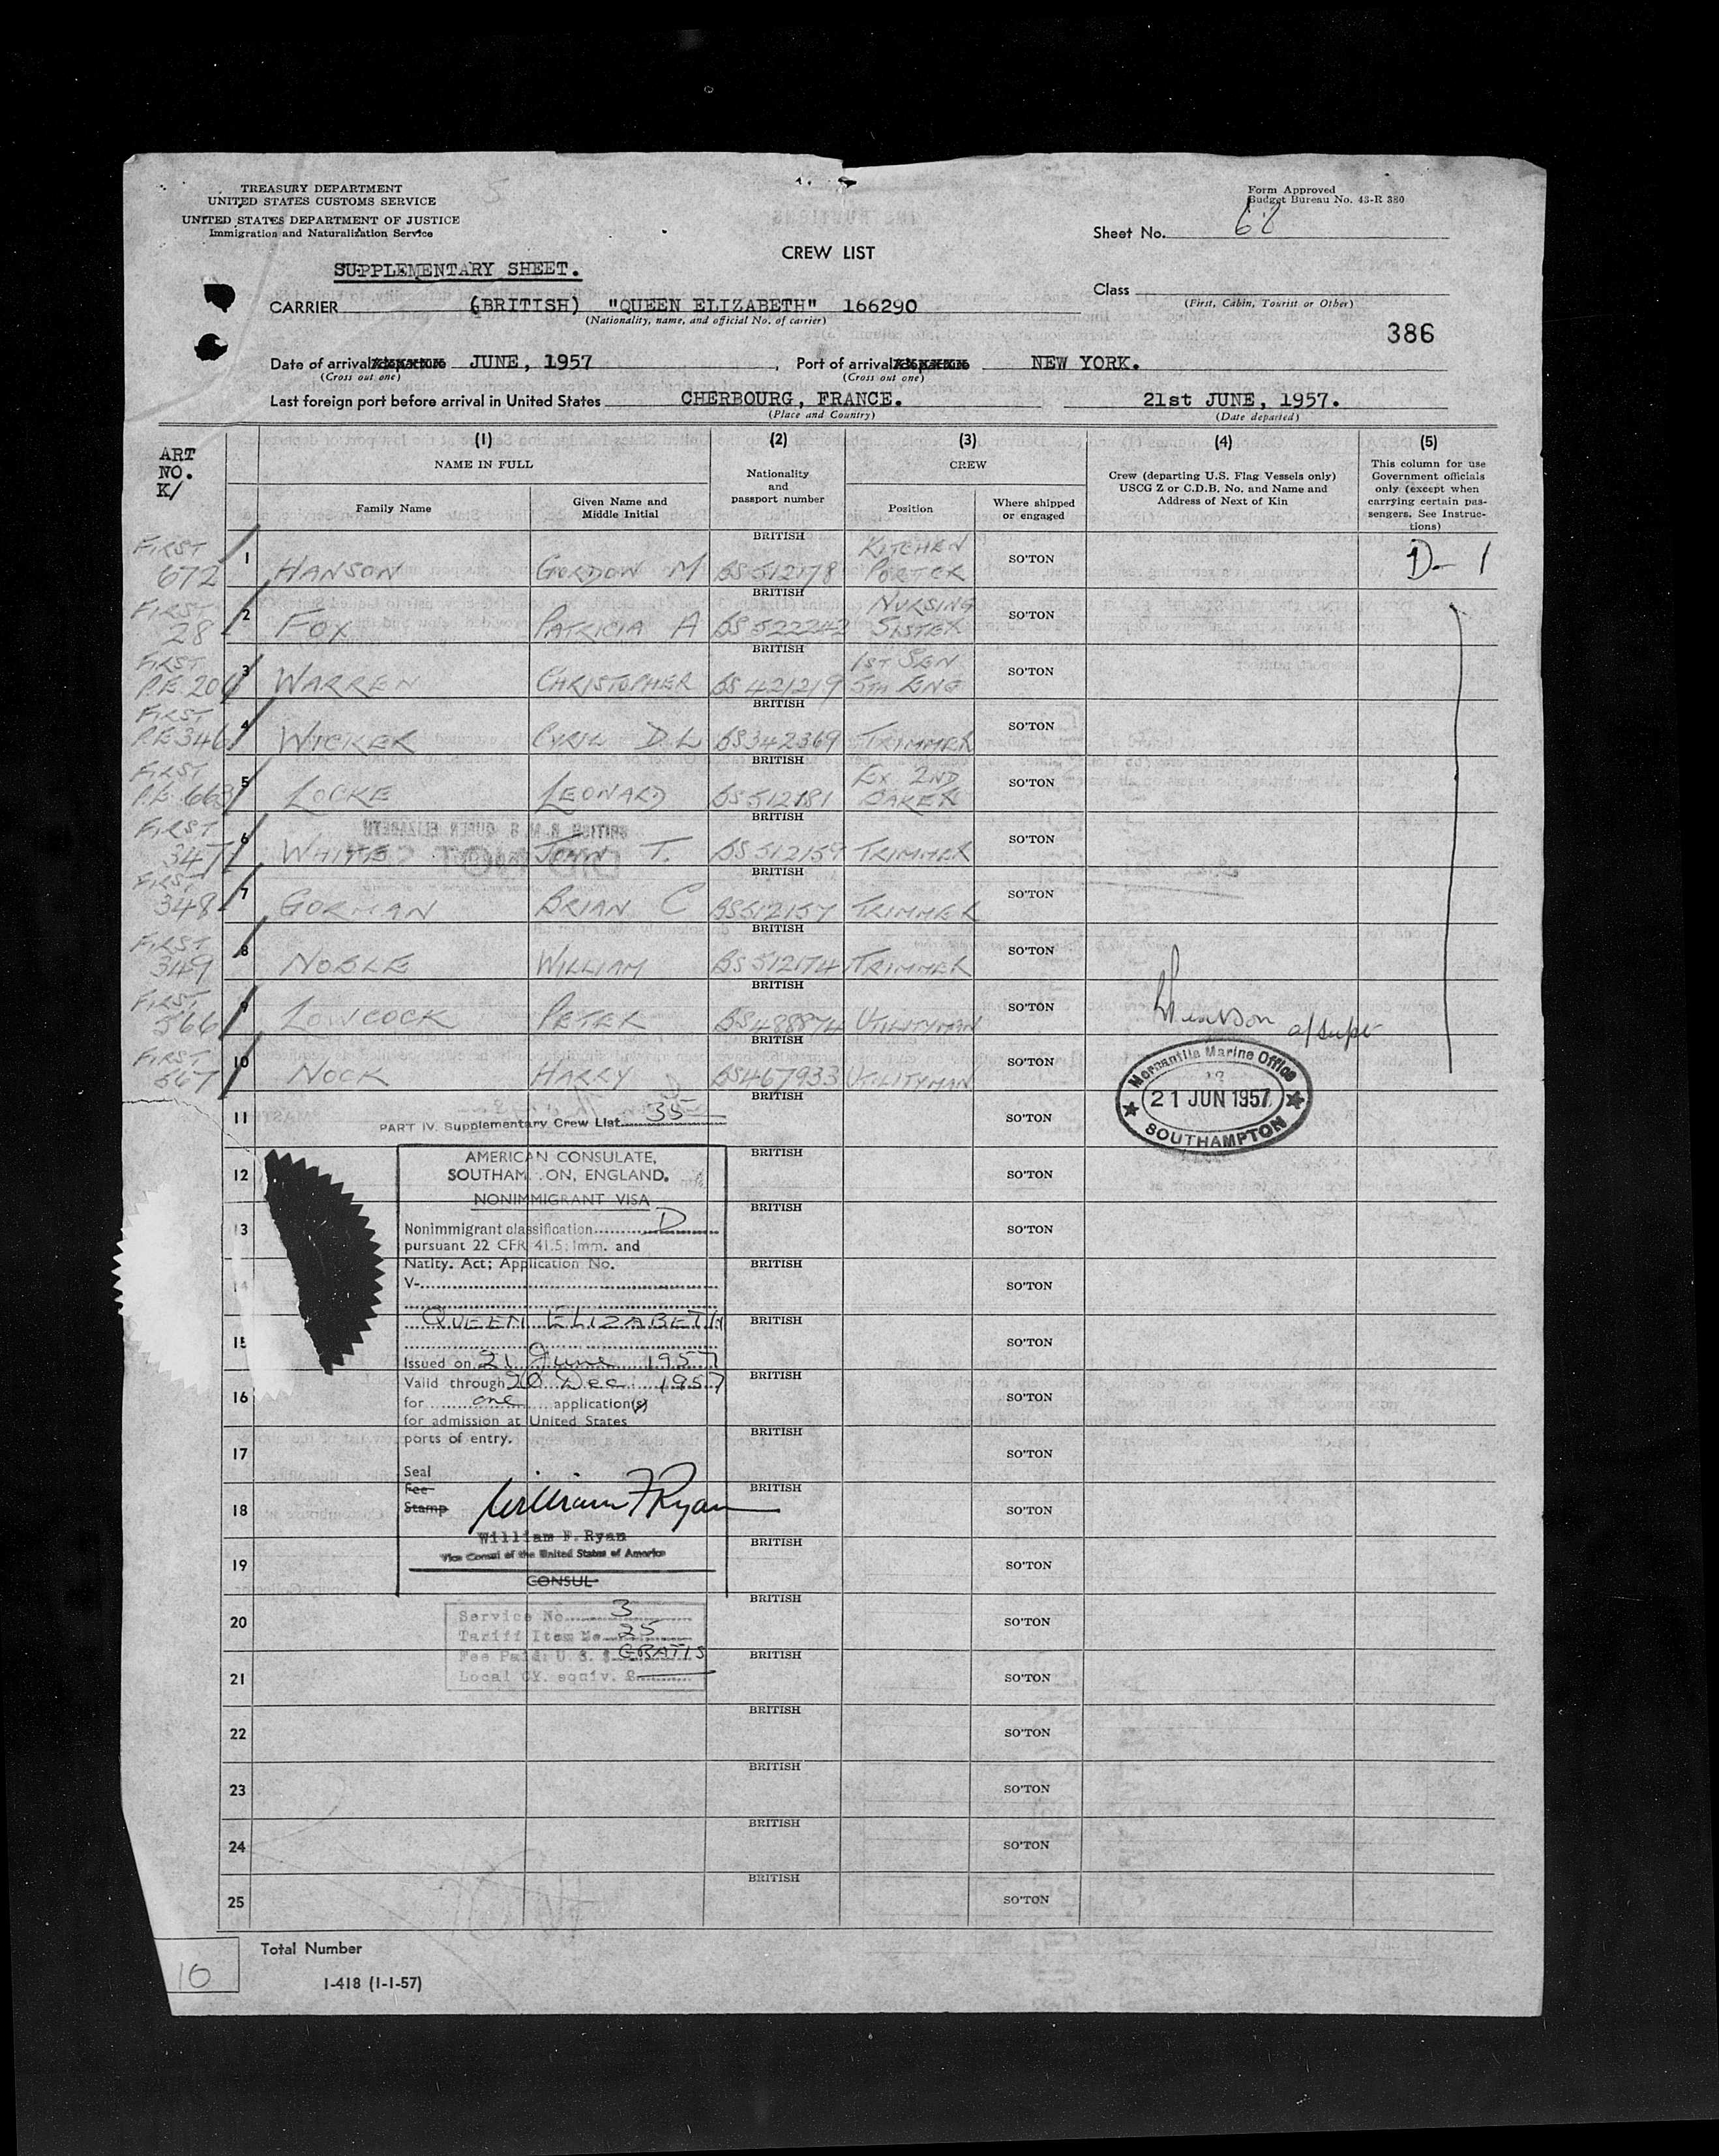 TREASURY DEPARTMENT
UNITED STATES CUSTOMS SERVICE
UNITED STATES DEPARTMENT OF JUSTICE
Immigration and Naturalization Service
Form Approved
Budget Bureau No. 43-R 380
Sheet No. 62
CREW LIST
SUPPLEMENTARY SHEET.
Class
(First, Cabin, Tourist or Other)
CARRIER (BRITISH) "QUEEN ELIZABETH" 166290
(Nationality, name, and official No. of carrier)
386
Date of arrival JUNE, 1957, Port of arrival NEW YORK.
(Cross out one) (Cross out one)
Last foreign port before arrival in United States CHERBOURG, FRANCE. 21st JUNE, 1957.
(Place and Country) (Date departed)
ART NO. K/
(1) (2) (3) (4) (5)
NAME IN FULL
Family Name
Given Name and Middle Initial
Nationality and passport number
CREW
Position
Where shipped or engaged
Crew (departing U.S. Flag Vessels only) USCG Z or C.D.B. No. and Name and Address of Next of Kin
This column for use Government officials only (except when carrying certain passengers. See Instructions)
FIRST 672 1 HANSON GORDON M BRITISH BS 512178 KITCHEN PORTER SO'TON D- 1
FIRST 28 2 FOX PATRICIA A BRITISH BS 522242 NURSING SISTER SO'TON
FIRST P.E. 3 WARREN CHRISTOPHER BRITISH BS 421219 1ST SEN 5TH ENG SO'TON
FIRST P.E. 346 4 WICKER CYRIL D L BRITISH BS 342369 TRIMMER SO'TON
FIRST P.E. 663 5 LOCKE LEONARD BRITISH BS 512181 EX 2ND BAKER SO'TON
FIRST 347 6 WHITE JOHN T. BRITISH BS 512159 TRIMMER SO'TON
FIRST 348 7 GORMAN BRIAN C BRITISH BS 512157 TRIMMER SO'TON
FIRST 349 8 NOBLE WILLIAM BRITISH BS 512174 TRIMMER SO'TON
FIRST 566 9 LOWCOCK PETER BRITISH BS 488874 UTILITYMAN SO'TON
a/supt
FIRST 567 10 NOCK HARRY BRITISH BS 467933 UTILITYMAN SO'TON
Mercantile Marine Office
21 JUN 1957
SOUTHAMPTON
11 BRITISH SO'TON
PART IV. Supplementary Crew List 35
12 BRITISH SO'TON
AMERICAN CONSULATE,
SOUTHAM ON, ENGLAND.
NONIMMIGRANT VISA
13 BRITISH SO'TON
Nonimmigrant classification D
pursuant 22 CFR 41.5; Imm. and
Natlty. Act; Application No.
14 BRITISH SO'TON
V-
QUEEN ELIZABETH
15 BRITISH SO'TON
Issued on 21 June 1957
Valid through 20 Dec. 1957
16 BRITISH SO'TON
for one application(s)
for admission at United States
ports of entry.
17 BRITISH SO'TON
Seal
Fee
Stamp
18 BRITISH SO'TON
William F Ryan
William F. Ryan
Vice Consul of the United States of America
19 BRITISH SO'TON
CONSUL
20 BRITISH SO'TON
Service No. 3
Tariff Item No. 25
Fee Paid: U. S. $ GRATIS
Local CY. equiv. £
21 BRITISH SO'TON
22 BRITISH SO'TON
23 BRITISH SO'TON
24 BRITISH SO'TON
25 BRITISH SO'TON
Total Number
10
I-418 (1-1-57)